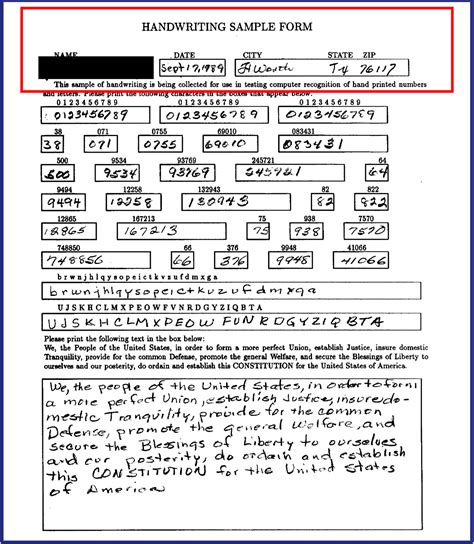 HANDWRITING SAMPLE FORM
NAME DATE CITY STATE ZIP
Sept 17,1989 Ft Worth Tx 76117
This sample of handwriting is being collected for use in testing computer recognition of hand printed numbers
and letters. Please print the following characters in the boxes that appear below.
0 1 2 3 4 5 6 7 8 9 0 1 2 3 4 5 6 7 8 9 0 1 2 3 4 5 6 7 8 9
0123456789 0123456789 0123456789
38 071 0755 69010 083431
38 071 0755 69010 083431
500 9534 93769 245721 64
500 9534 93769 64
9494 12258 132943 82 822
9494 12258 132943 82 822
12865 167213 75 938 7570
12865 167213 75 938 7570
748850 66 376 9948 41066
66 376 9948 41066
b r w n j h l q y s o p e i c t k v z u f d m x g a
brwnjhlqysopeictkvzufdmxga
U J S K H C L M X P E O W F V N R D G Y Z I Q B T A
UJSKHCLMXPEOWFVNRDGYZIQBTA
Please print the following text in the box below:
We, the People of the United States, in order to form a more perfect Union, establish Justice, insure domestic
Tranquility, provide for the common Defense, promote the general Welfare, and secure the Blessings of Liberty to
ourselves and our posterity, do ordain and establish this CONSTITUTION for the United States of America.
We, the people of the United States, in order to form
a more perfect Union, establish Justice, insure do-
mestic Tranquility, provide for the common
Defense, promote the general Welfare, and
secure the Blessings of Liberty to ourselves
and our posterity, do ordain and establish
this CONSTITUTION for the United States
of America